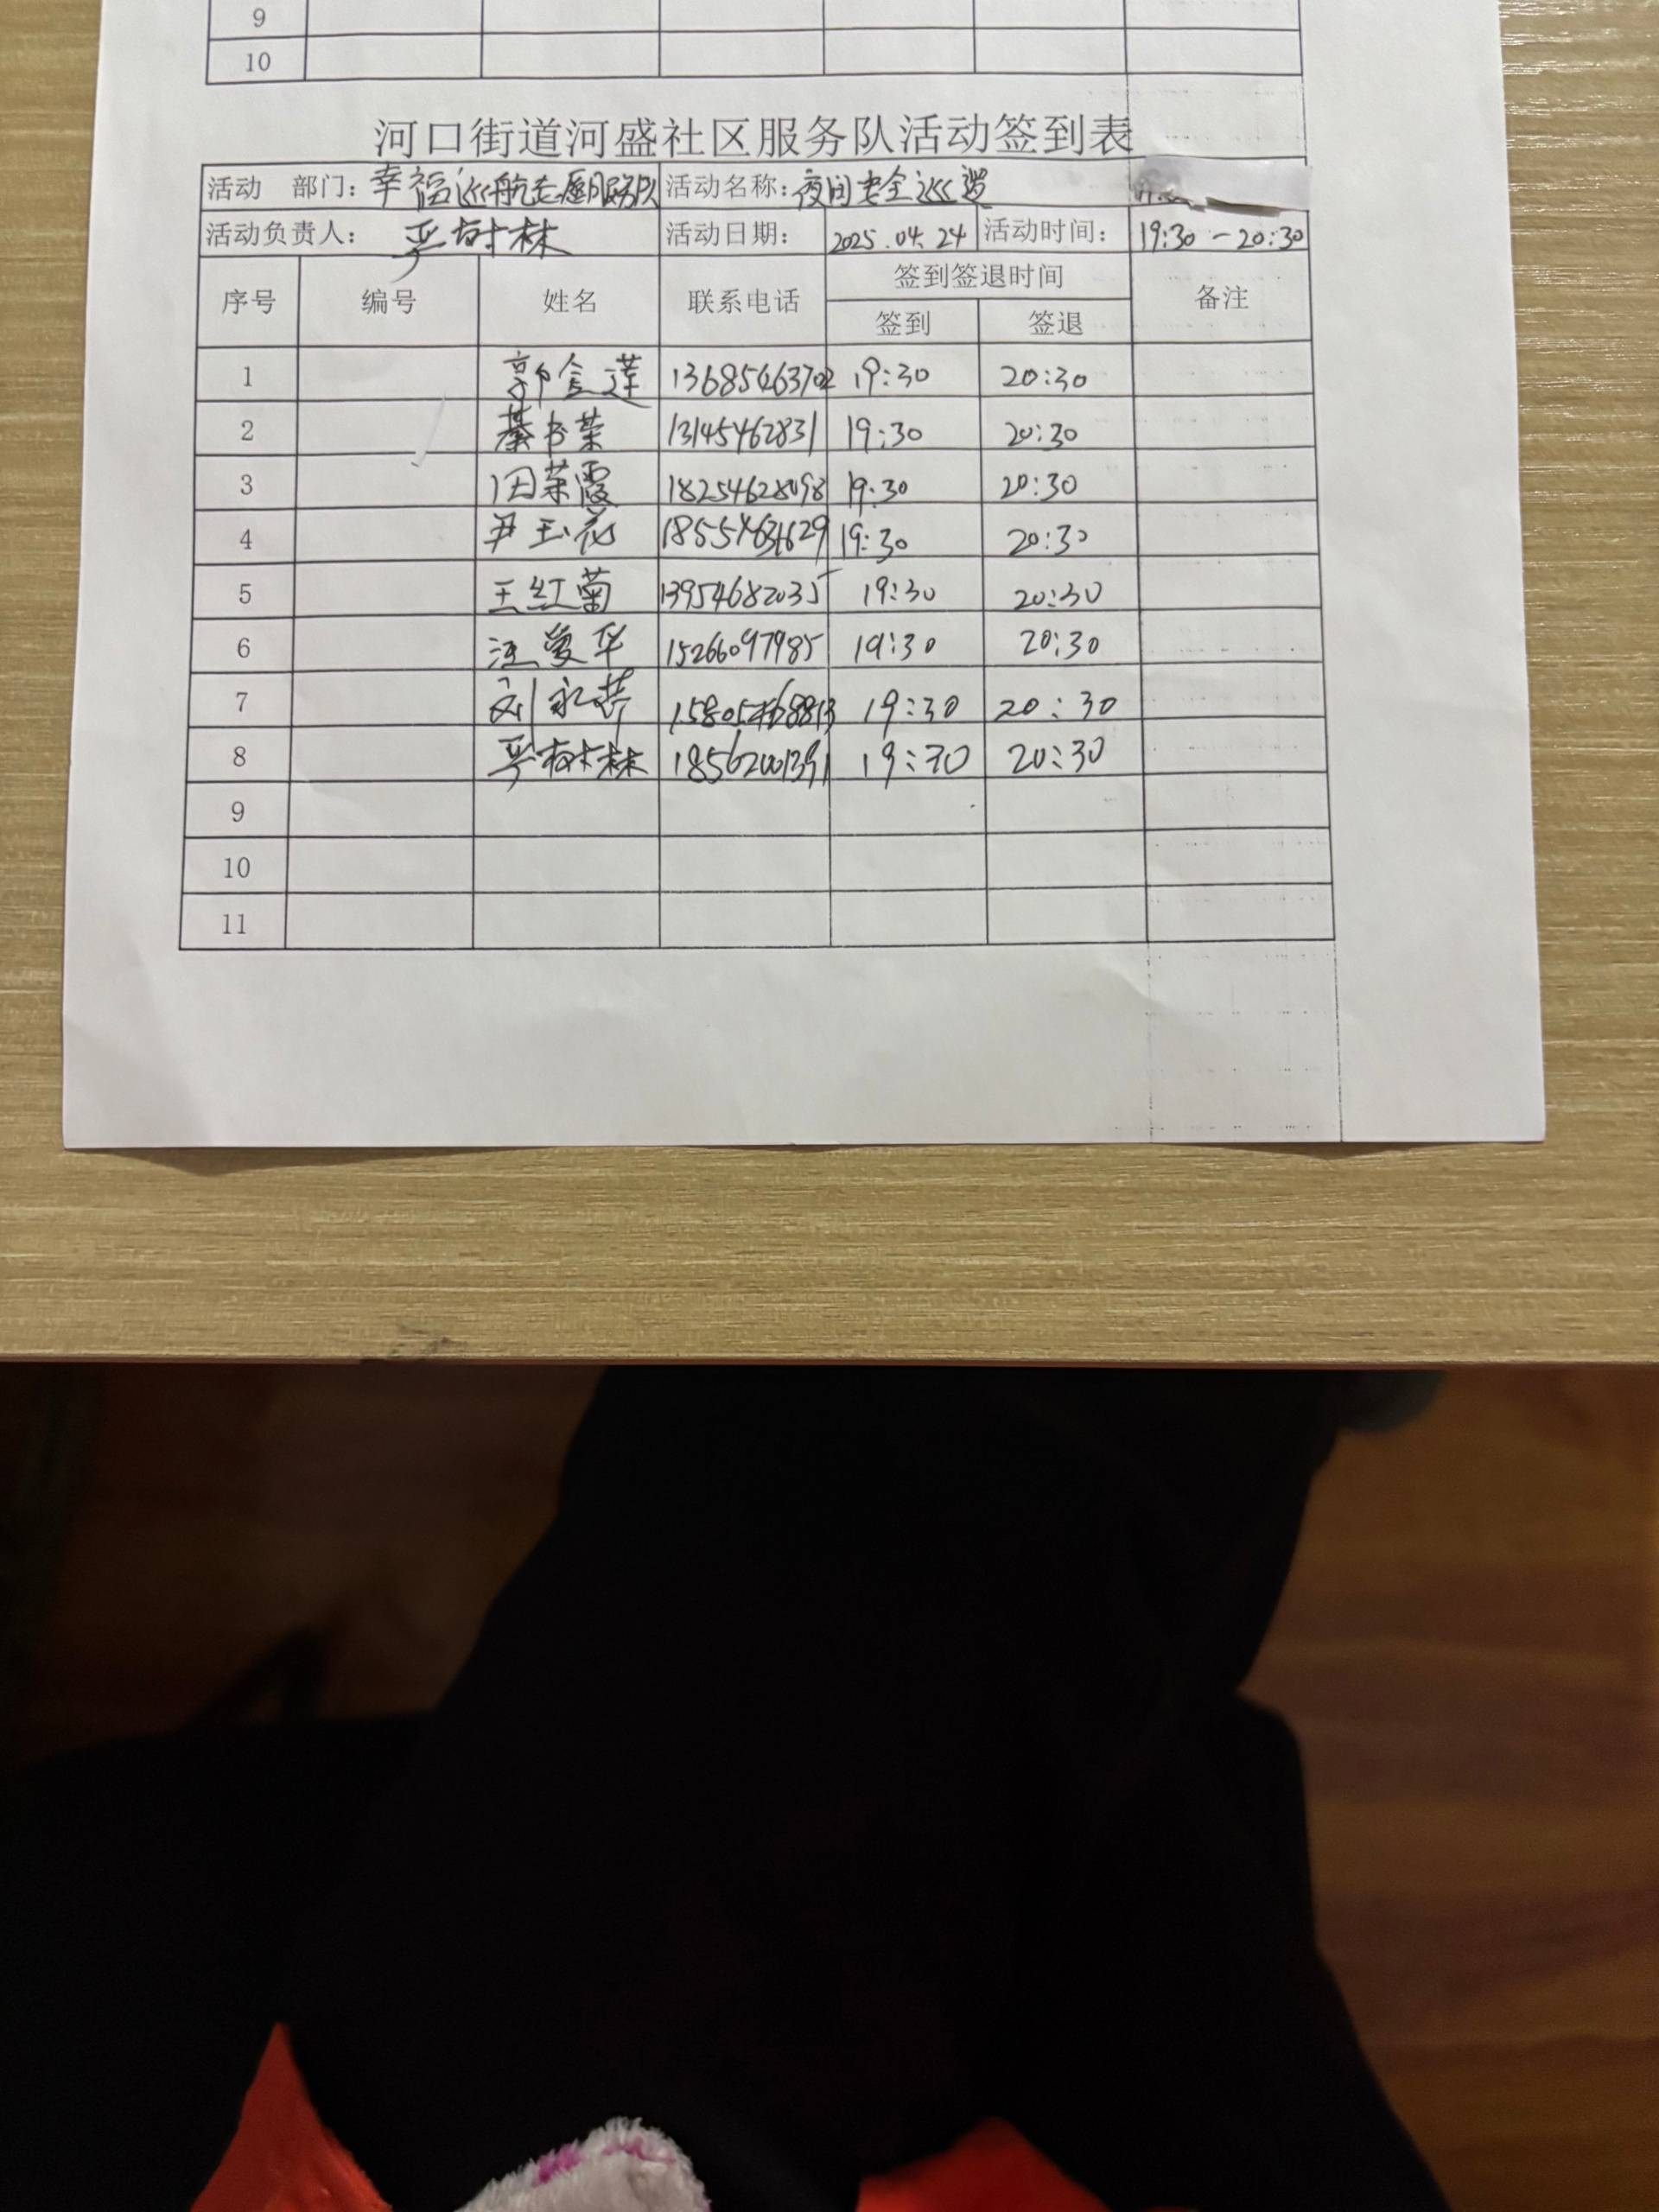 9
10
河口街道河盛社区服务队活动签到表
活动 部门: 幸福巡航志愿服务队 活动名称: 夜间安全巡逻
活动负责人: 严树林 活动日期: 2025.04.24 活动时间: 19:30-20:30
序号 编号 姓名 联系电话 签到签退时间 备注
签到 签退
1 郭金莲 13685463702 19:30 20:30
2 綦书荣 13145462831 19:30 20:30
3 田荣霞 18254628098 19:30 20:30
4 尹玉花 19:30 20:30
5 王红菊 13954682035 19:30 20:30
6 汪爱华 15266097985 19:30 20:30
7 刘永恭 19:30 20:30
8 严树林 18562001391 19:30 20:30
9
10
11